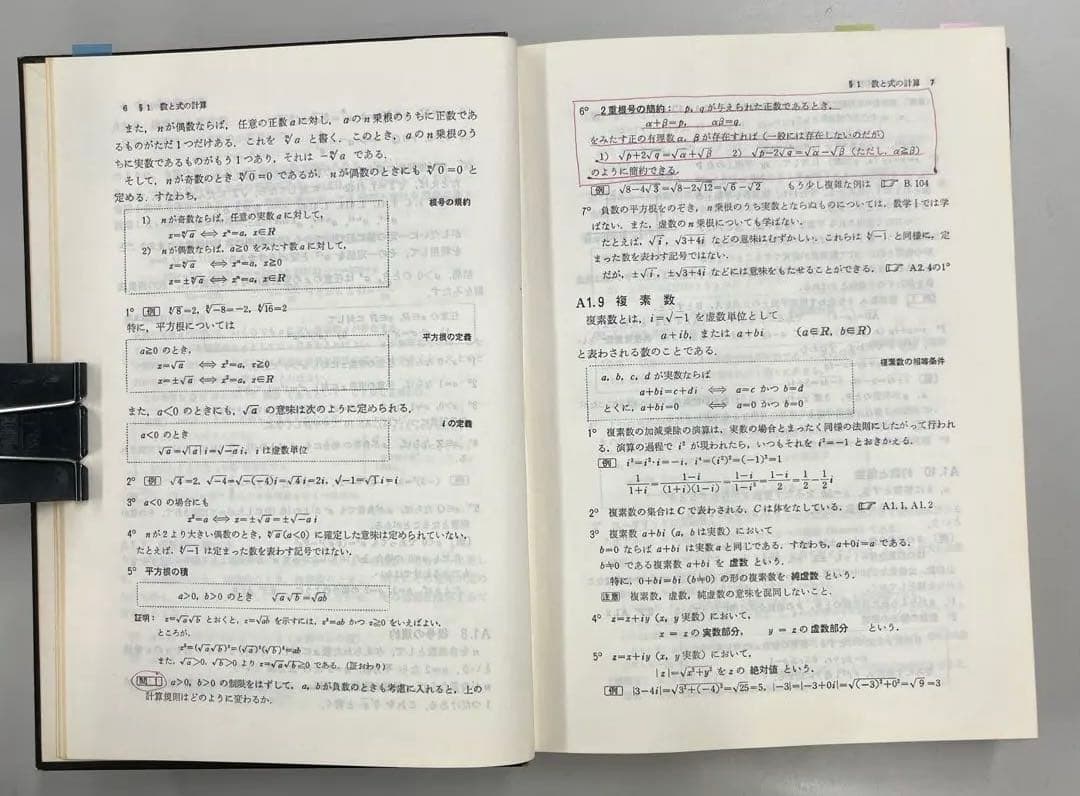 6 §1 数と式の計算
また，nが偶数ならば，任意の正数aに対し，aのn乗根のうちに正数であ
るものがただ1つだけある．これを ⁿ√a と書く．このとき，aのn乗根のう
ちに実数であるものがもう1つあり，それは −ⁿ√a である．
そして，nが奇数のとき ⁿ√0=0 であるが，nが偶数のときにも ⁿ√0=0 と
定める．すなわち，
根号の規約
1) nが奇数ならば，任意の実数aに対して，
x=ⁿ√a ⟺ xⁿ=a, x∈R
2) nが偶数ならば，a≧0 をみたす数aに対して，
x=ⁿ√a ⟺ xⁿ=a, x≧0
x=±ⁿ√a ⟺ xⁿ=a, x∈R
1° 例 ³√8=2, ³√−8=−2, ⁴√16=2
特に，平方根については
平方根の定義
a≧0 のとき，
x=√a ⟺ x²=a, x≧0
x=±√a ⟺ x²=a, x∈R
また，a<0 のときにも，√a の意味は次のように定められる．
i の定義
a<0 のとき
√a=√|a| i=√−a i, i は虚数単位
2° 例 √4=2, √−4=√−(−4) i=√4 i=2i, √−1=√1 i=i
3° a<0 の場合にも
x²=a ⟺ x=±√a=±√−a i
4° nが2より大きい偶数のとき，ⁿ√a (a<0) に確定した意味は定められていない．
たとえば，⁴√−1 は定まった数を表わす記号ではない．
5° 平方根の積
a>0, b>0 のとき √a √b=√ab
証明： x=√a √b とおくと，x=√ab を示すには，x²=ab かつ x≧0 をいえばよい．
ところが，
x²=(√a √b)²=(√a)²(√b)²=ab
また，√a>0, √b>0 より x=√a √b≧0 である．(証おわり)
問 1 a>0, b>0 の制限をはずして，a, bが負数のときも考慮に入れると，上の
計算規則はどのように変わるか．
§1 数と式の計算 7
6° 2重根号の簡約： p, qが与えられた正数であるとき，
α+β=p, αβ=q
をみたす正の有理数α, βが存在すれば (一般には存在しないのだが)
1) √p+2√q=√α+√β 2) √p−2√q=√α−√β (ただし，α≧β)
のように簡約できる．
例 √8−4√3=√8−2√12=√6−√2 もう少し複雑な例は ☞ B.104
7° 負数の平方根をのぞき，n乗根のうち実数とならぬものについては，数学Ⅰでは学
ばない．また，虚数のn乗根についても学ばない．
たとえば，√i, √3+4i などの意味はむずかしい．これらは ⁴√−1 と同様に，定
まった数を表わす記号ではない．
だが，±√i, ±√3+4i などには意味をもたせることができる．☞ A2.4の1°
A1.9 複素数
複素数とは，i=√−1 を虚数単位として
a+ib, または a+bi (a∈R, b∈R)
と表わされる数のことである．
複素数の相等条件
a, b, c, d が実数ならば
a+bi=c+di ⟺ a=c かつ b=d
とくに，a+bi=0 ⟺ a=0 かつ b=0
1° 複素数の加減乗除の演算は，実数の場合とまったく同様の法則にしたがって行われ
る．演算の過程で i² が現われたら，いつもそれを i²=−1 とおきかえる．
例 i³=i²·i=−i, i⁴=(i²)²=(−1)²=1
1/(1+i)=(1−i)/((1+i)(1−i))=(1−i)/(1−i²)=(1−i)/2=1/2−1/2 i
2° 複素数の集合はCで表わされる．Cは体をなしている． ☞ A1.1, A1.2
3° 複素数 a+bi (a, bは実数) において
b=0 ならば a+bi は実数 a と同じである．すなわち，a+0i=a である．
b≠0 である複素数 a+bi を 虚数 という．
特に，0+bi=bi (b≠0) の形の複素数を 純虚数 という．
注意 複素数，虚数，純虚数の意味を混同しないこと．
4° z=x+iy (x, y実数) において，
x = z の実数部分， y = z の虚数部分 という．
5° z=x+iy (x, y実数) において，
|z|=√x²+y² を z の 絶対値 という．
例 |3−4i|=√3²+(−4)²=√25=5, |−3|=|−3+0i|=√(−3)²+0²=√9=3